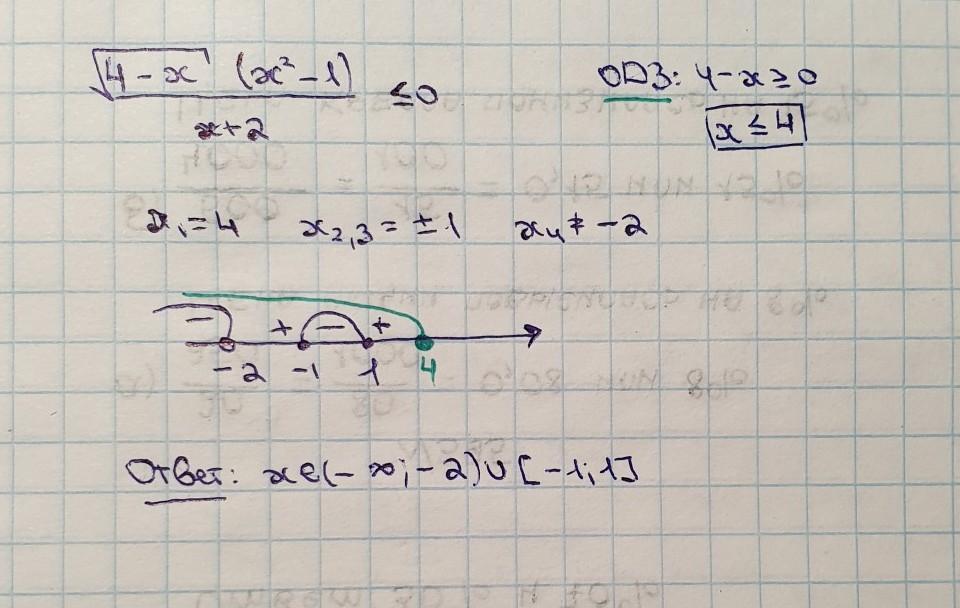 √(4-x) (x²-1) / x+2 ≤0
ОДЗ: 4-x≥0
x≤4
x₁=4 x₂,₃=±1 x₄≠-2
- + - +
-2 -1 1 4
Ответ: x∈(-∞;-2)∪[-1;1]